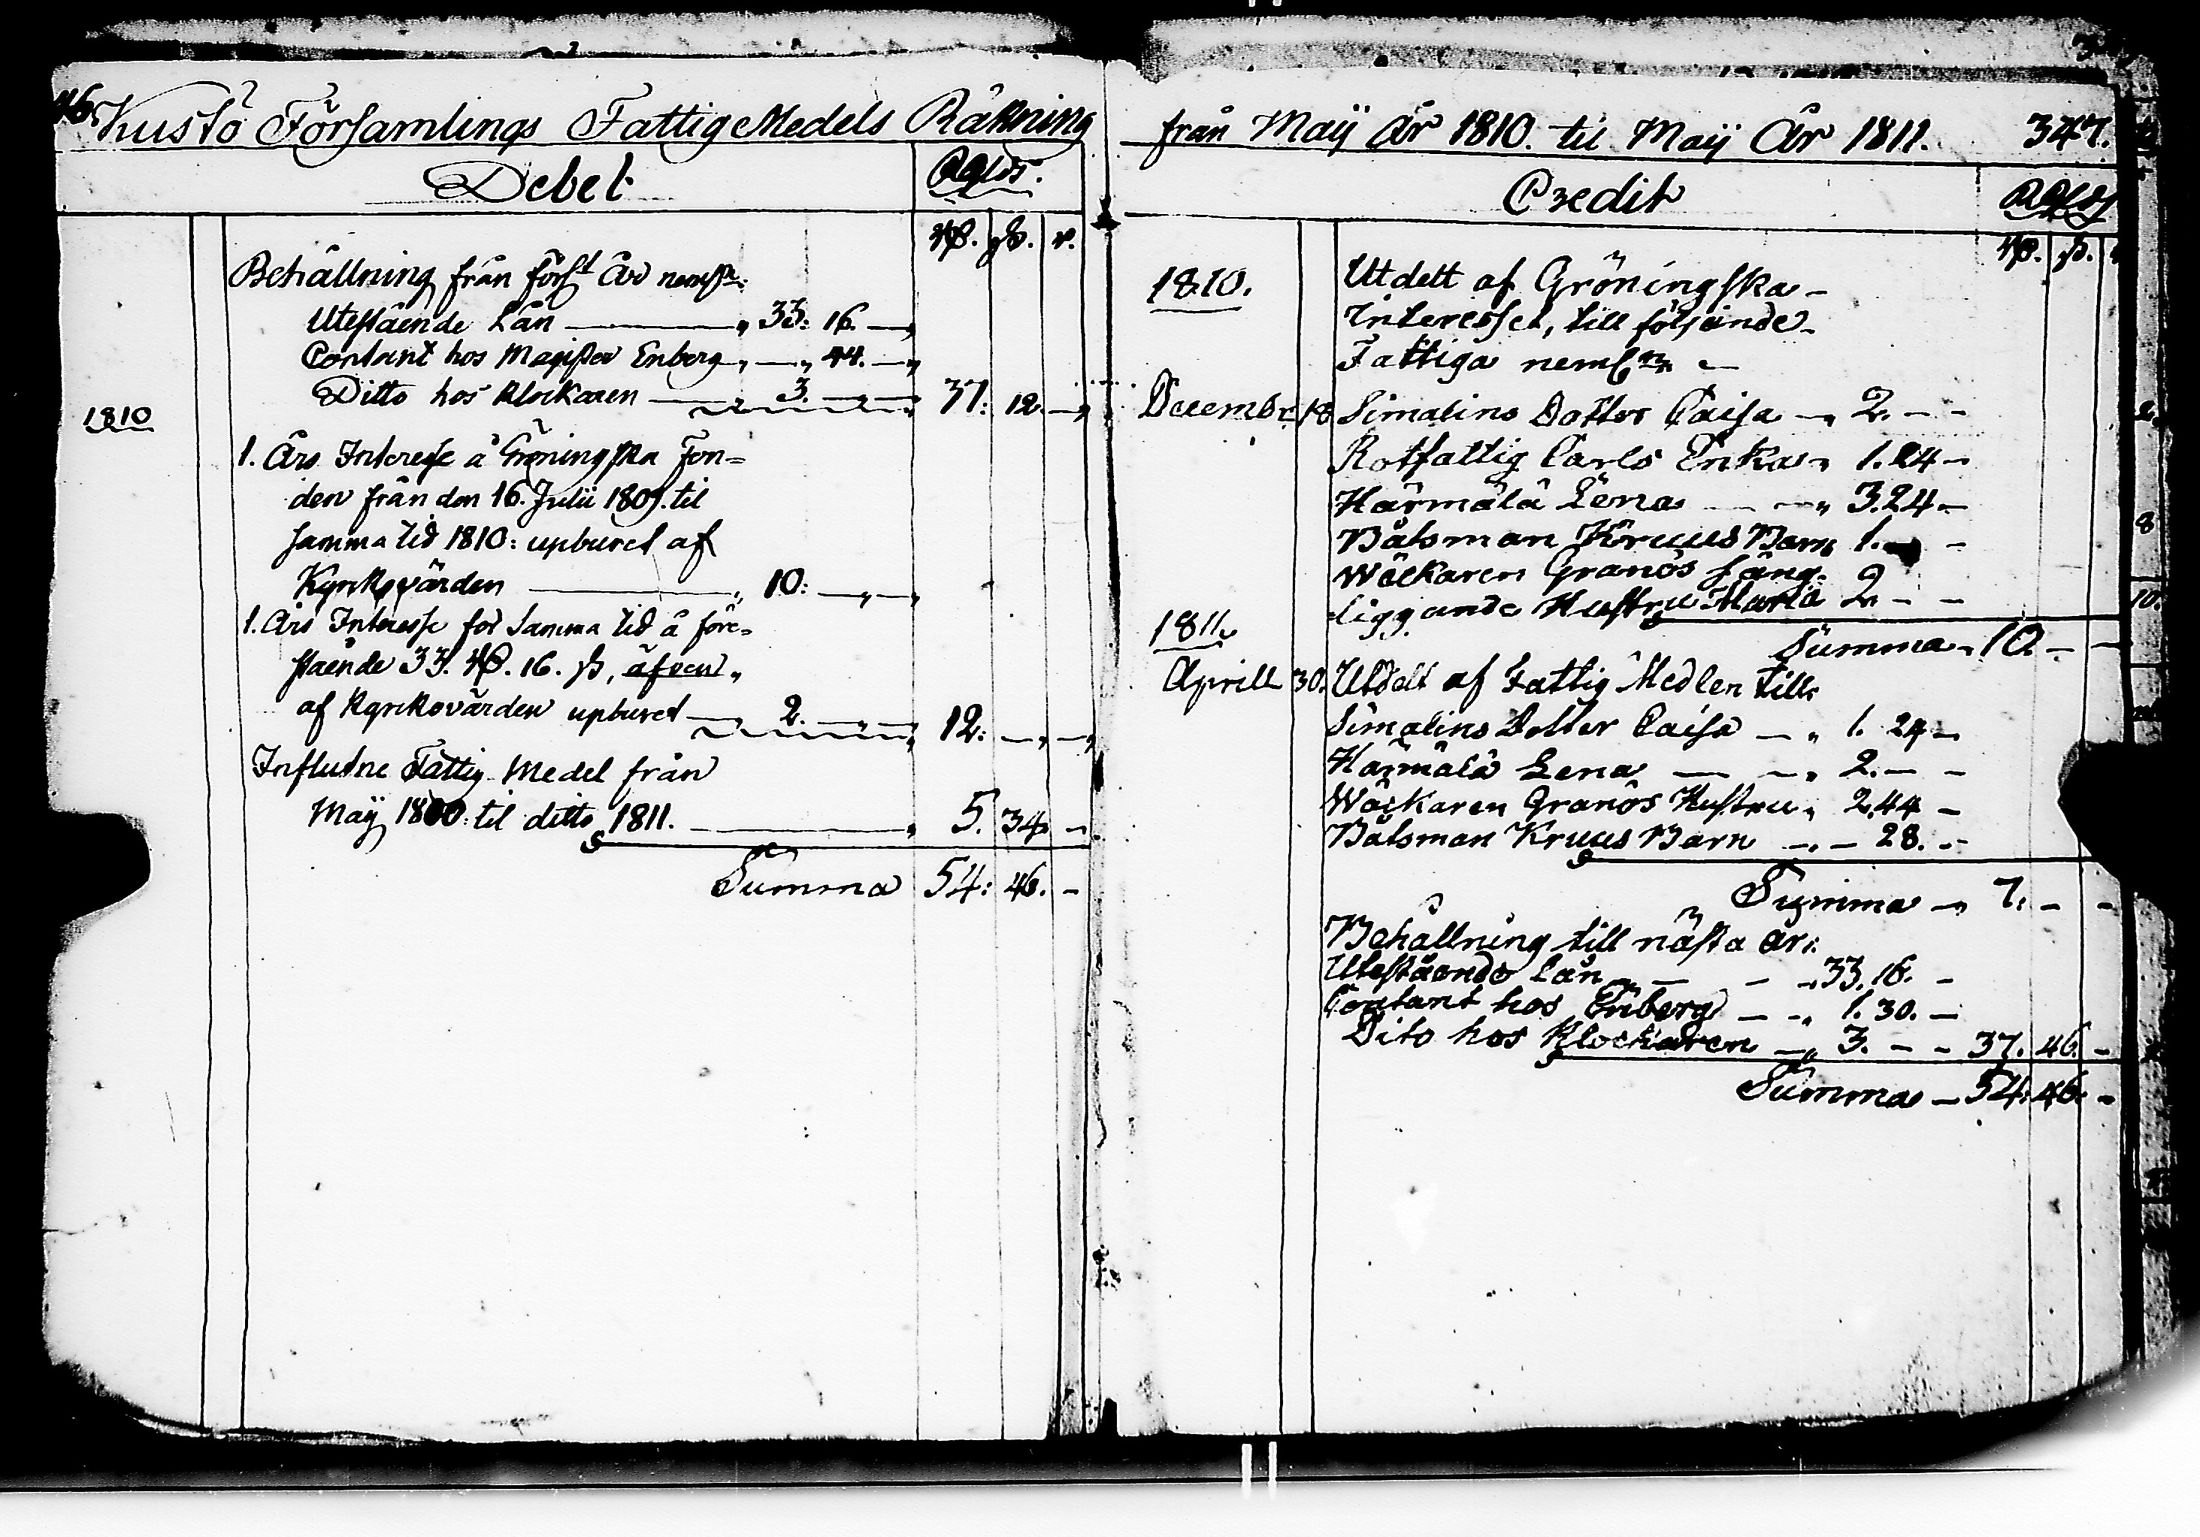 46. Kustö Församlings Fattig Medels Räkning
Debet Rgds.
rd. ß. r.
Behållning från förl. År neml:
Utestående Lån — 33: 16. —
Contant hos Magister Enberg — 44. —
Ditto hos Klockaren — 3. — — 37: 12. —
1810
1. Års Interesse å Gröningska Fon=
den från den 16. Julii 1809. til
samma tid 1810: upburet af
Kyrkovärden — 10: — —
1. Års Interesse för samma tid å före=
stående 33. rd. 16. ß, äfven
af Kyrkovärden upburet — 2. — — 12: — —
Influtne Fattig Medel från
Maij 1810: til ditto 1811. — 5. 34. —
Summa 54: 46. —
från Maij År 1810. til Maij År 1811. 347.
Credit Rgds
rd. ß.
1810. Utdelt af Gröningska
Interesset, till följande
Fattiga neml:n
Decembr 18 Simalins Dotter Caisa — 2. — —
Rotfattig Carls Enka 1. 24 —
Harmälä Lena — 3. 24 —
Båtsman Kruus Barn 1. — —
Wäckaren Granös säng-
liggande Hustru Maria 2. — —
Summa 10. — —
1811.
Aprill 30. Utdelt af Fattig Medlen till
Simalins Dotter Caisa — 1. 24 —
Harmälä Lena — — 2. — —
Wäckaren Granös Hustru 2. 44 —
Båtsman Kruus Barn — — 28. —
Summa — 7. — —
Behållning till nästa år:
Utestående Lån — — 33. 16. —
Contant hos Enberg — 1. 30. —
Dito hos Klockaren — 3. — — 37. 46. —
Summa — 54: 46. —